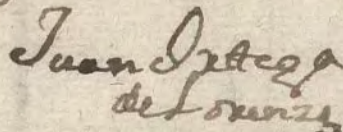 Juan Ortega
de Lorenzo